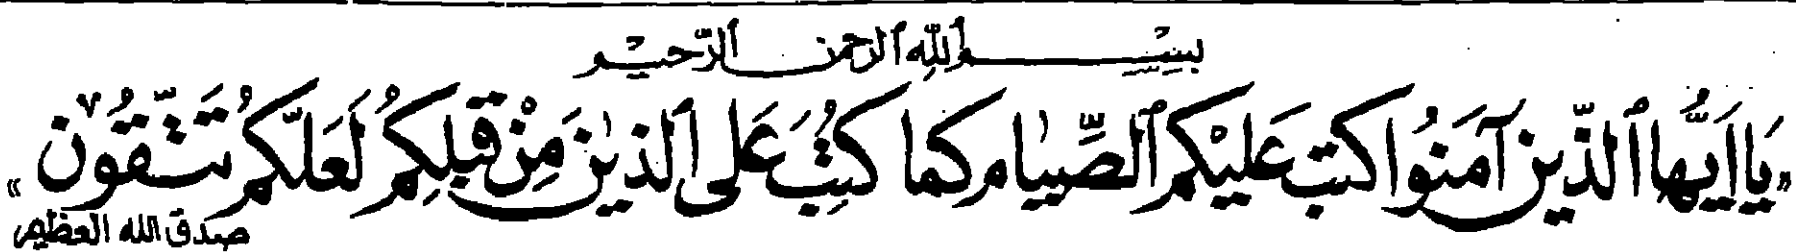 بسم الله الرحمن الرحيم
«يَا أَيُّهَا ٱلَّذِينَ آمَنُوا كُتِبَ عَلَيْكُمُ ٱلصِّيَامُ كَمَا كُتِبَ عَلَى ٱلَّذِينَ مِنْ قَبْلِكُمْ لَعَلَّكُمْ تَتَّقُونَ»
صدق الله العظيم